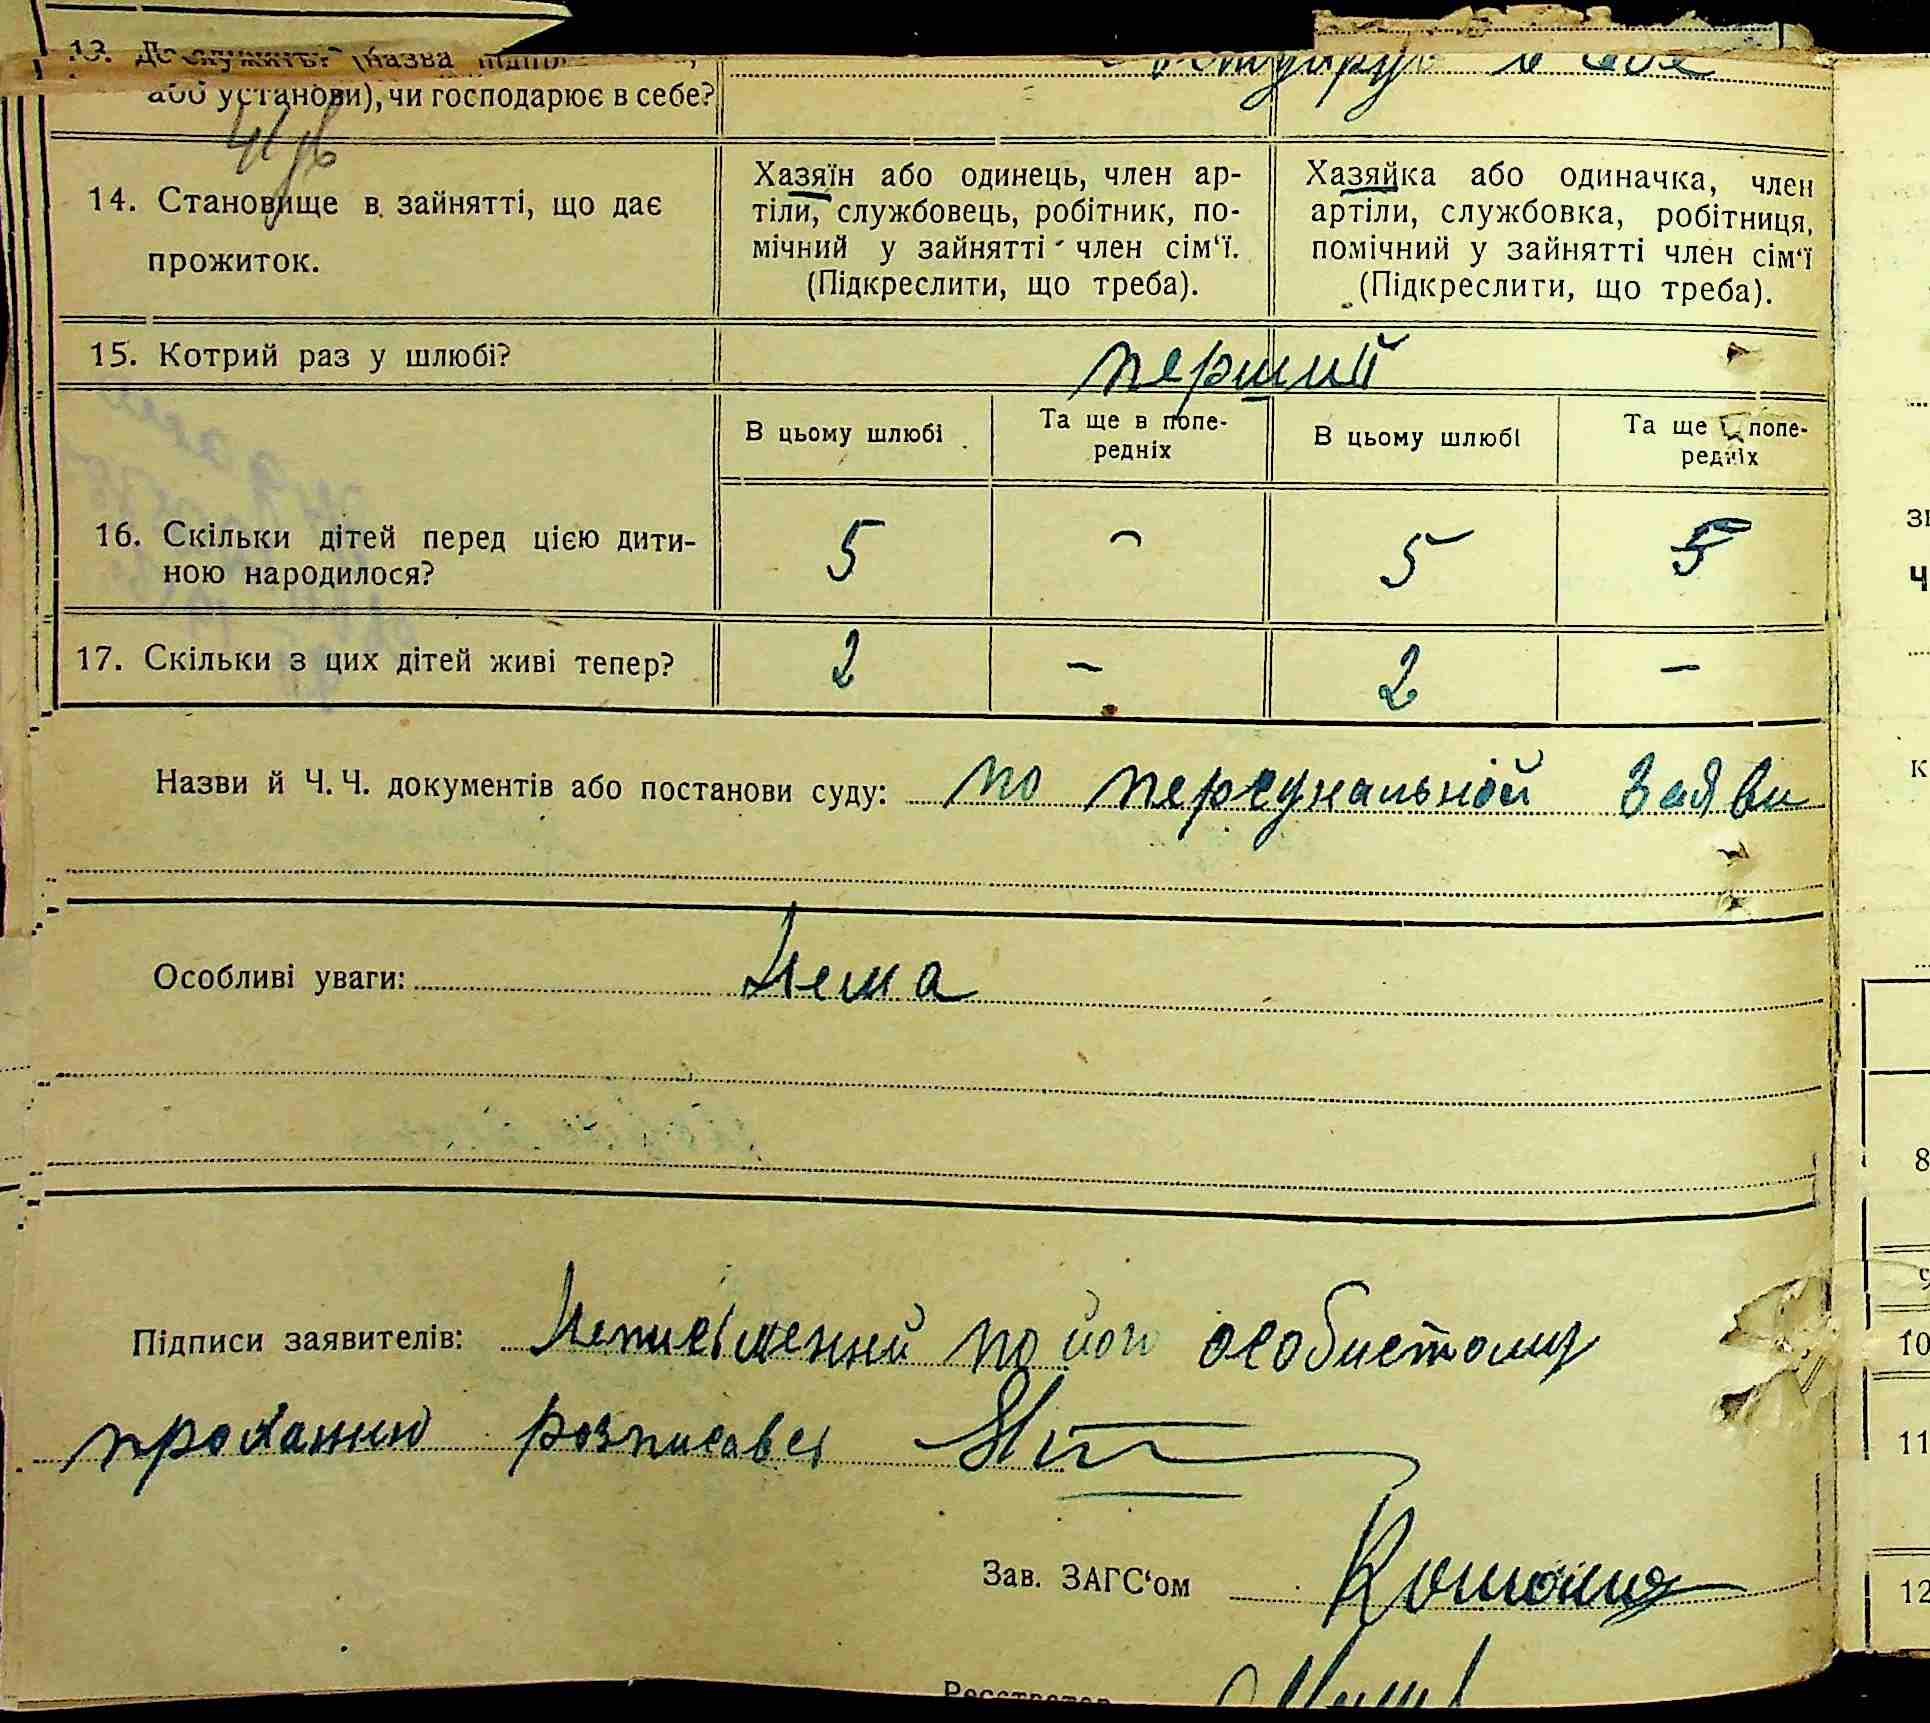 13. Де служить? (назва
або установи), чи господарює в себе?
14. Становище в зайнятті, що дає
прожиток.
Хазяїн або одинець, член ар-
тіли, службовець, робітник, по-
мічний у зайнятті член сім‘ї.
(Підкреслити, що треба).
Хазяйка або одиначка, член
артіли, службовка, робітниця,
помічний у зайнятті член сім‘ї
(Підкреслити, що треба).
15. Котрий раз у шлюбі?
перший
В цьому шлюбі
Та ще в попе-
редніх
В цьому шлюбі
Та ще в попе-
редніх
16. Скільки дітей перед цією дити-
ною народилося?
5 - 5
17. Скільки з цих дітей живі тепер?
2 - 2 -
Назви й Ч. Ч. документів або постанови суду: по персунальной заяви
Особливі уваги: Нема
Підписи заявителів: Неписьменний по його особистому
проханню розписався
Зав. ЗАГС‘ом
зн
ч
к
8
9
10
11
12